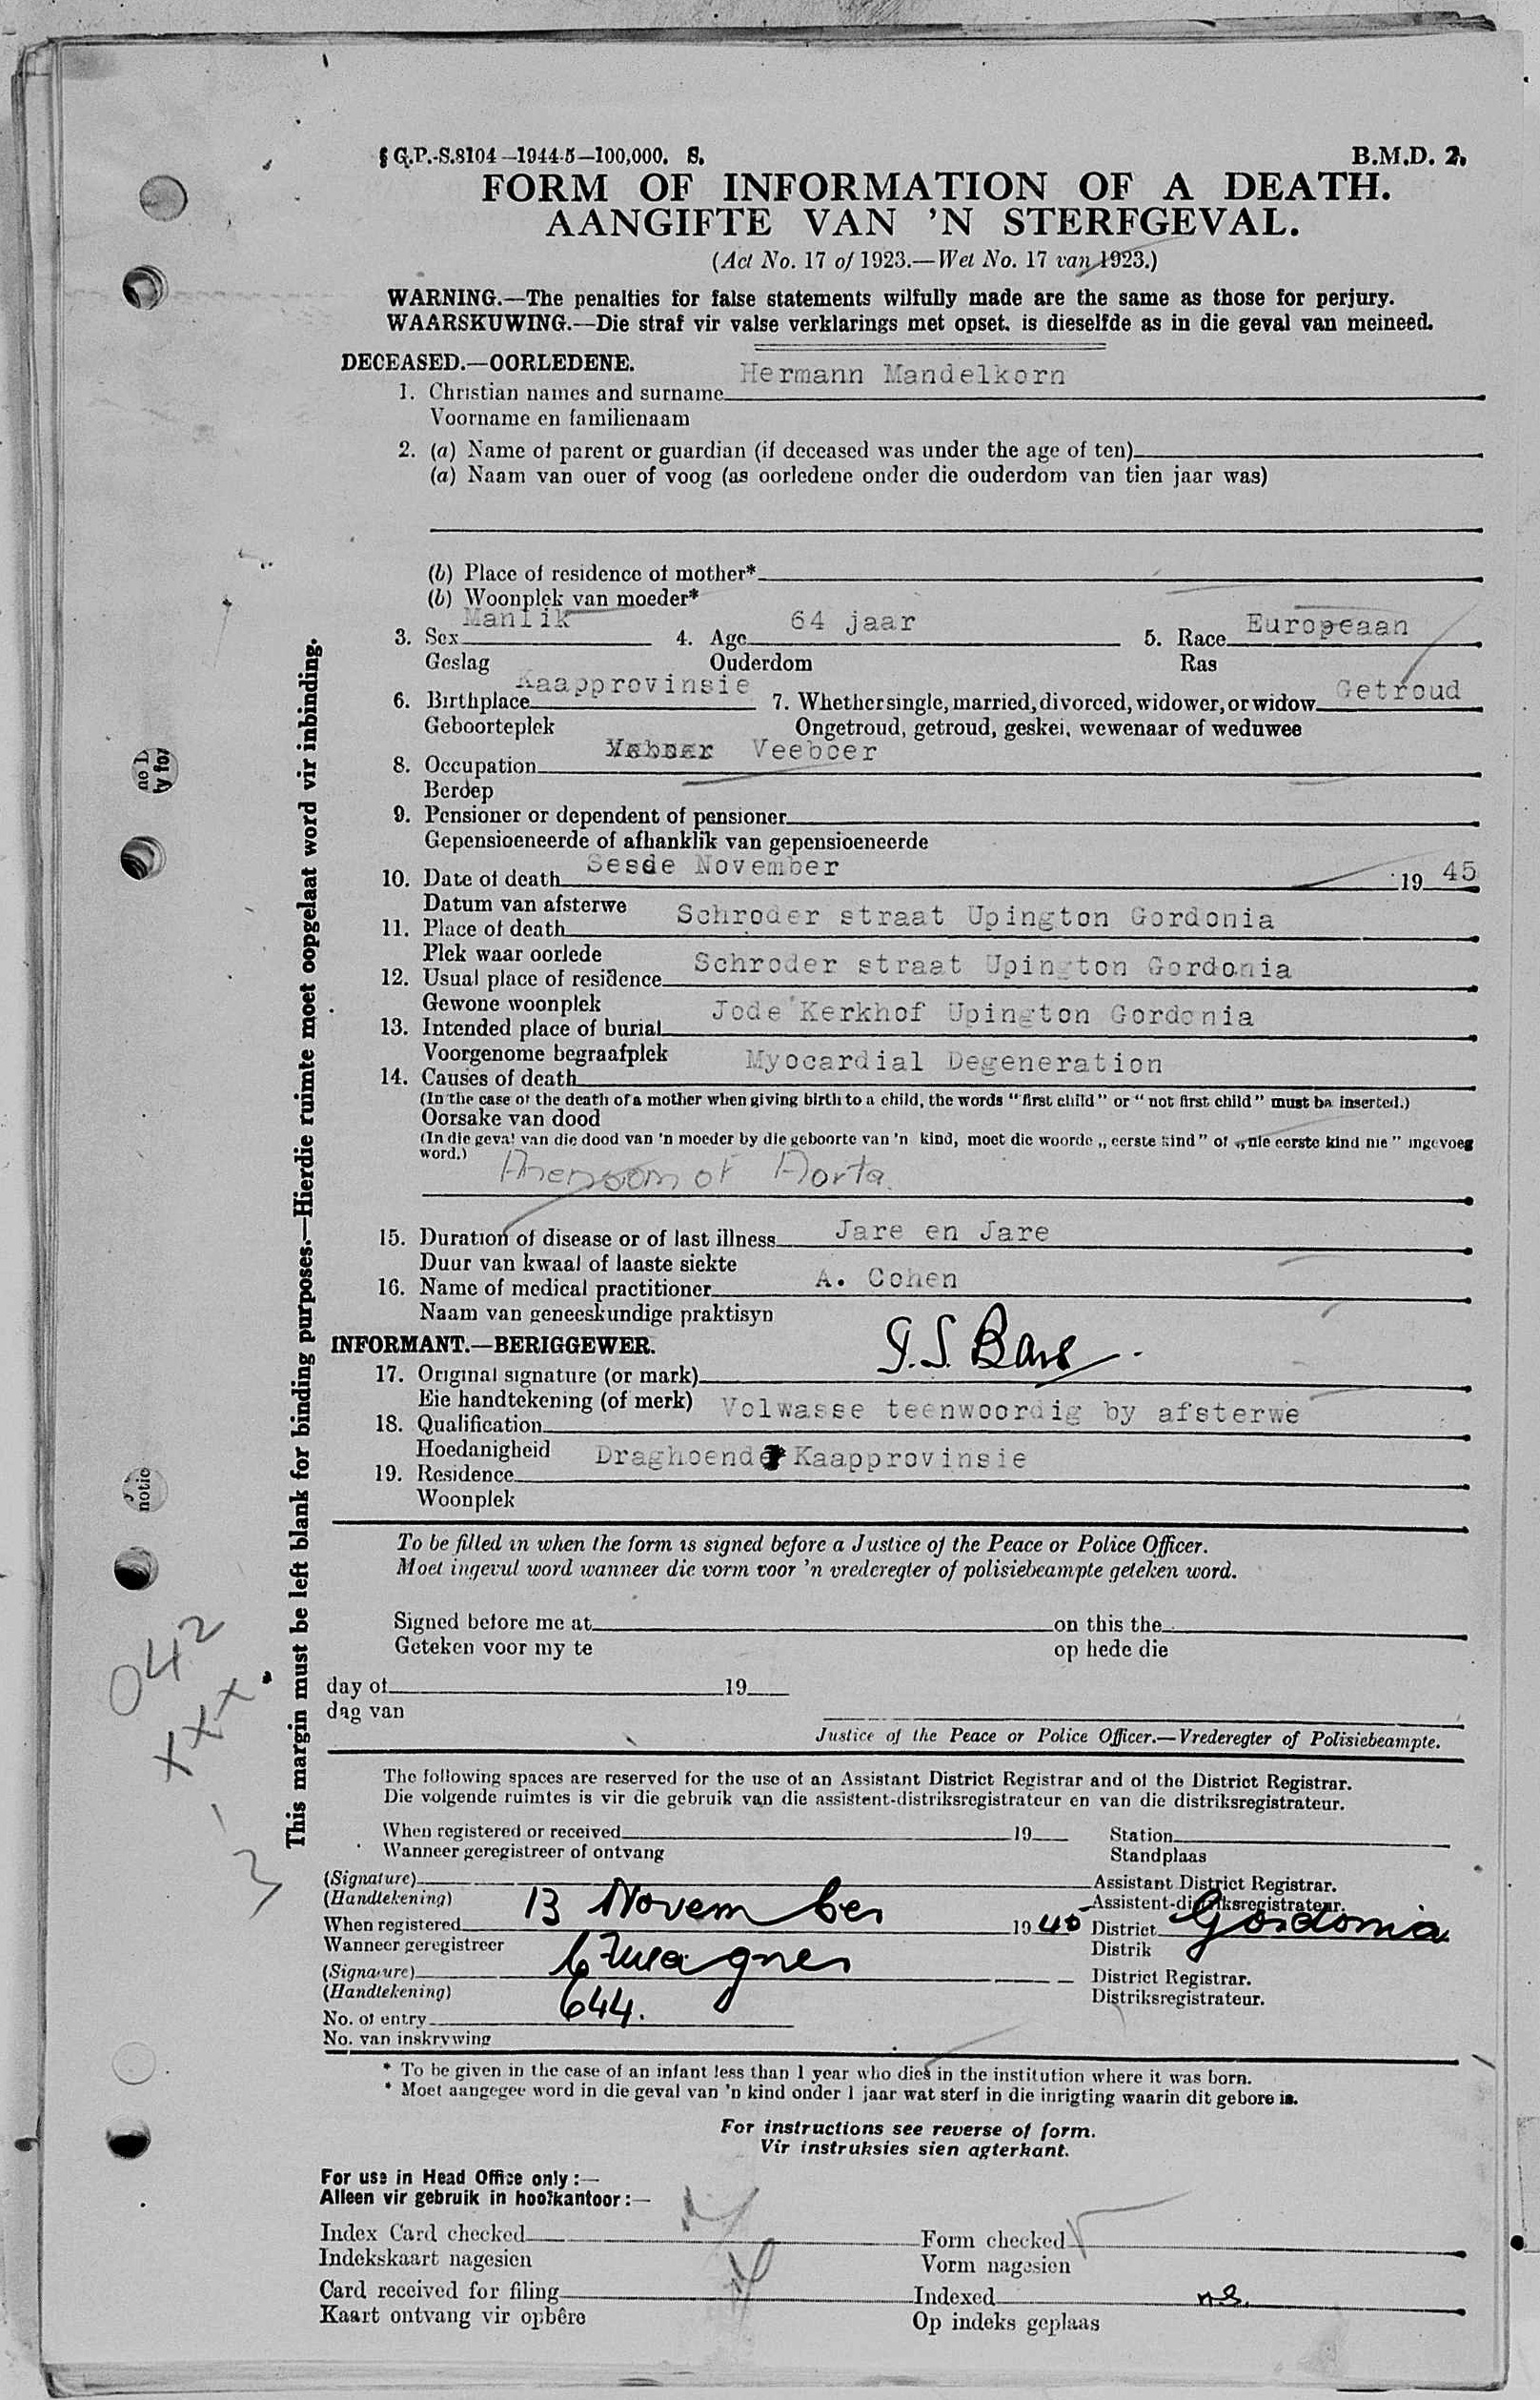 § G.P.-S.8104—1944-5—100,000. S. B.M.D. 2.
FORM OF INFORMATION OF A DEATH.
AANGIFTE VAN 'N STERFGEVAL.
(Act No. 17 of 1923.—Wet No. 17 van 1923.)
WARNING.—The penalties for false statements wilfully made are the same as those for perjury.
WAARSKUWING.—Die straf vir valse verklarings met opset. is dieselfde as in die geval van meineed.
DECEASED.—OORLEDENE.
1. Christian names and surname Hermann Mandelkorn
Voorname en familienaam
2. (a) Name of parent or guardian (if deceased was under the age of ten)
(a) Naam van ouer of voog (as oorledene onder die ouderdom van tien jaar was)
(b) Place of residence of mother*
(b) Woonplek van moeder*
3. Sex Manlik 4. Age 64 jaar 5. Race Europeaan
Geslag Ouderdom Ras
6. Birthplace Kaapprovinsie 7. Whether single, married, divorced, widower, or widow Getroud
Geboorteplek Ongetroud, getroud, geskei, wewenaar of weduwee
8. Occupation Veeboer
Beroep
9. Pensioner or dependent of pensioner
Gepensioeneerde of afhanklik van gepensioeneerde
10. Date of death Sesde November 19 45
Datum van afsterwe
11. Place of death Schroder straat Upington Gordonia
Plek waar oorlede
12. Usual place of residence Schroder straat Upington Gordonia
Gewone woonplek
13. Intended place of burial Jode Kerkhof Upington Gordonia
Voorgenome begraafplek
14. Causes of death Myocardial Degeneration
(In the case of the death of a mother when giving birth to a child, the words "first child" or "not first child" must be inserted.)
Oorsake van dood
(In die geval van die dood van 'n moeder by die geboorte van 'n kind, moet die woorde „eerste kind" of „nie eerste kind nie" ingevoeg
word.)
of Aorta.
15. Duration of disease or of last illness Jare en Jare
Duur van kwaal of laaste siekte
16. Name of medical practitioner A. Cohen
Naam van geneeskundige praktisyn
INFORMANT.—BERIGGEWER.
17. Original signature (or mark)
Eie handtekening (of merk)
18. Qualification Volwasse teenwoordig by afsterwe
Hoedanigheid
19. Residence Draghoender Kaapprovinsie
Woonplek
To be filled in when the form is signed before a Justice of the Peace or Police Officer.
Moet ingevul word wanneer die vorm voor 'n vrederegter of polisiebeampte geteken word.
Signed before me at on this the
Geteken voor my te op hede die
day of 19
dag van
Justice of the Peace or Police Officer.—Vrederegter of Polisiebeampte.
The following spaces are reserved for the use of an Assistant District Registrar and of the District Registrar.
Die volgende ruimtes is vir die gebruik van die assistent-distriksregistrateur en van die distriksregistrateur.
When registered or received 19 Station
Wanneer geregistreer of ontvang Standplaas
(Signature) Assistant District Registrar.
(Handtekening) Assistent-distriksregistrateur.
When registered 13 November 19 45 District Gordonia
Wanneer geregistreer Distrik
(Signature) District Registrar.
(Handtekening) Distriksregistrateur.
No. of entry 644.
No. van inskrywing
* To be given in the case of an infant less than 1 year who dies in the institution where it was born.
* Moet aangegee word in die geval van 'n kind onder 1 jaar wat sterf in die inrigting waarin dit gebore is.
For instructions see reverse of form.
Vir instruksies sien agterkant.
For use in Head Office only:—
Alleen vir gebruik in hoofkantoor:—
Index Card checked Form checked
Indekskaart nagesien Vorm nagesien
Card received for filing Indexed
Kaart ontvang vir opbêre Op indeks geplaas
This margin must be left blank for binding purposes.—Hierdie ruimte moet oopgelaat word vir inbinding.
042
xxx.